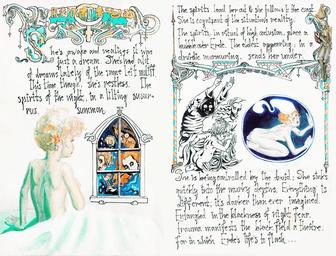 She's awake and realizes it was
just a dream. She's had a lot
of dreams lately of the same ilk, but
this time though, she's restless. The
spirits of the night, in a lilting susur-
rus. summon
The spirits lead her and she follows to the coast
She is cognizant of the situation's reality.
The spirits, in ritual of high occasion, place a
bubble over Eyde. The endless oppressing, in a
murmuring, sends her under.
She is being controlled by the druid. She sinks
quickly into the murky depths. Everything is
different, it's darker than ever imagined.
Entangled in the blackness of night fear,
trauma manifests the bleak field a theatre,
for in which Eyde's life is flush....